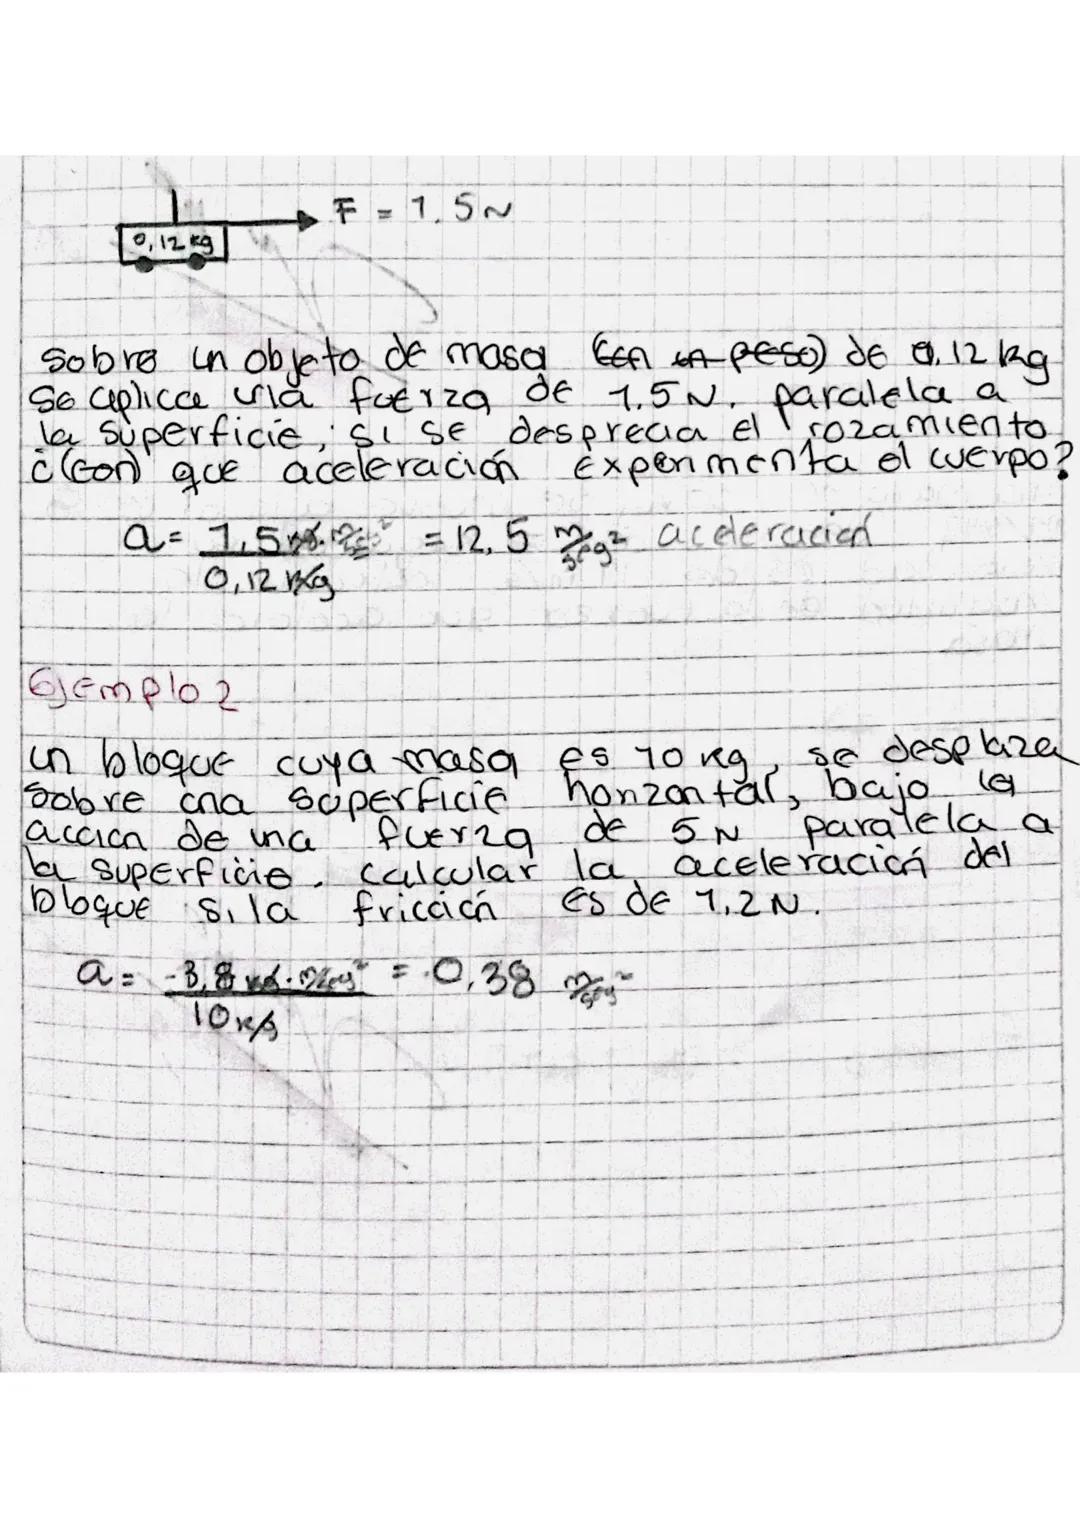 F = 1.5 N
0,12 kg
Sobre un objeto de masa (con un peso) de 0.12 kg
Se aplica una fuerza de 1.5 N. paralela a
la superficie, si se desprecia el rozamiento
¿(con) que aceleración experimenta el cuerpo?
a = 1,5 kg. m/seg² = 12,5 m/seg² aceleración
0,12 kg
Ejemplo 2
un bloque cuya masa es 10 kg, se desplaza
sobre una superficie horizontal, bajo la
acción de una fuerza de 5 N paralela a
la superficie. calcular la aceleración del
bloque si la fricción es de 1,2 N.
a = -3,8 kg. m/seg² = -0,38 m/seg²
10 kg